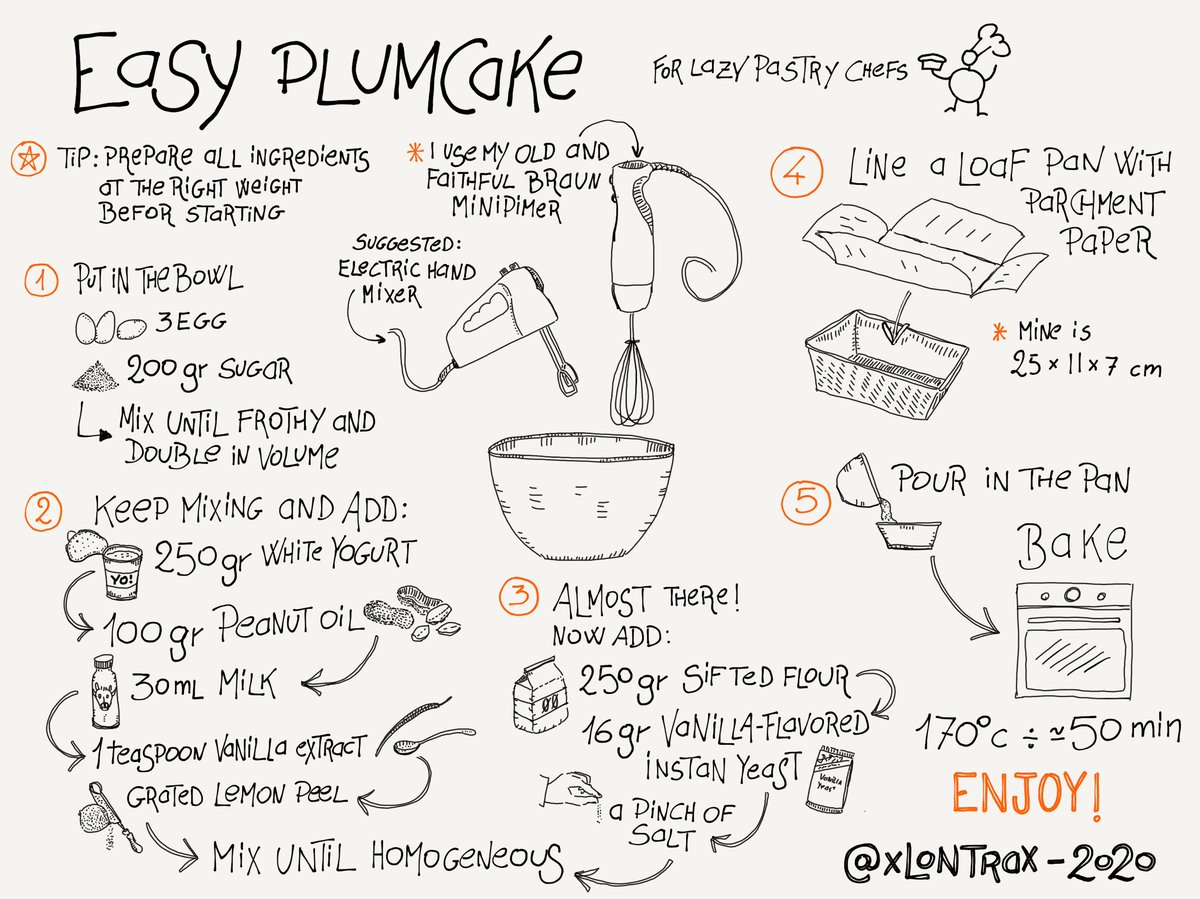 Easy Plumcake
For Lazy Pastry Chefs
Tip: Prepare all ingredients
at the right weight
befor starting
* I use my old and
faithful Braun
Minipimer
Suggested:
Electric hand
mixer
1 Put in the bowl
3 egg
200 gr sugar
Mix until frothy and
double in volume
2 Keep mixing and add:
250 gr white yogurt
YO!
100 gr peanut oil
30 ml milk
1 teaspoon vanilla extract
Grated lemon peel
Mix until homogeneous
3 Almost there!
Now add:
250 gr sifted flour
00
16 gr vanilla-flavored
instan yeast
Vanilla
yeast
a pinch of
salt
4 Line a loaf pan with
parchment
paper
* Mine is
25 x 11 x 7 cm
5 Pour in the pan
Bake
170°c ÷ ≃50 min
ENJOY!
@xLontrax - 2020